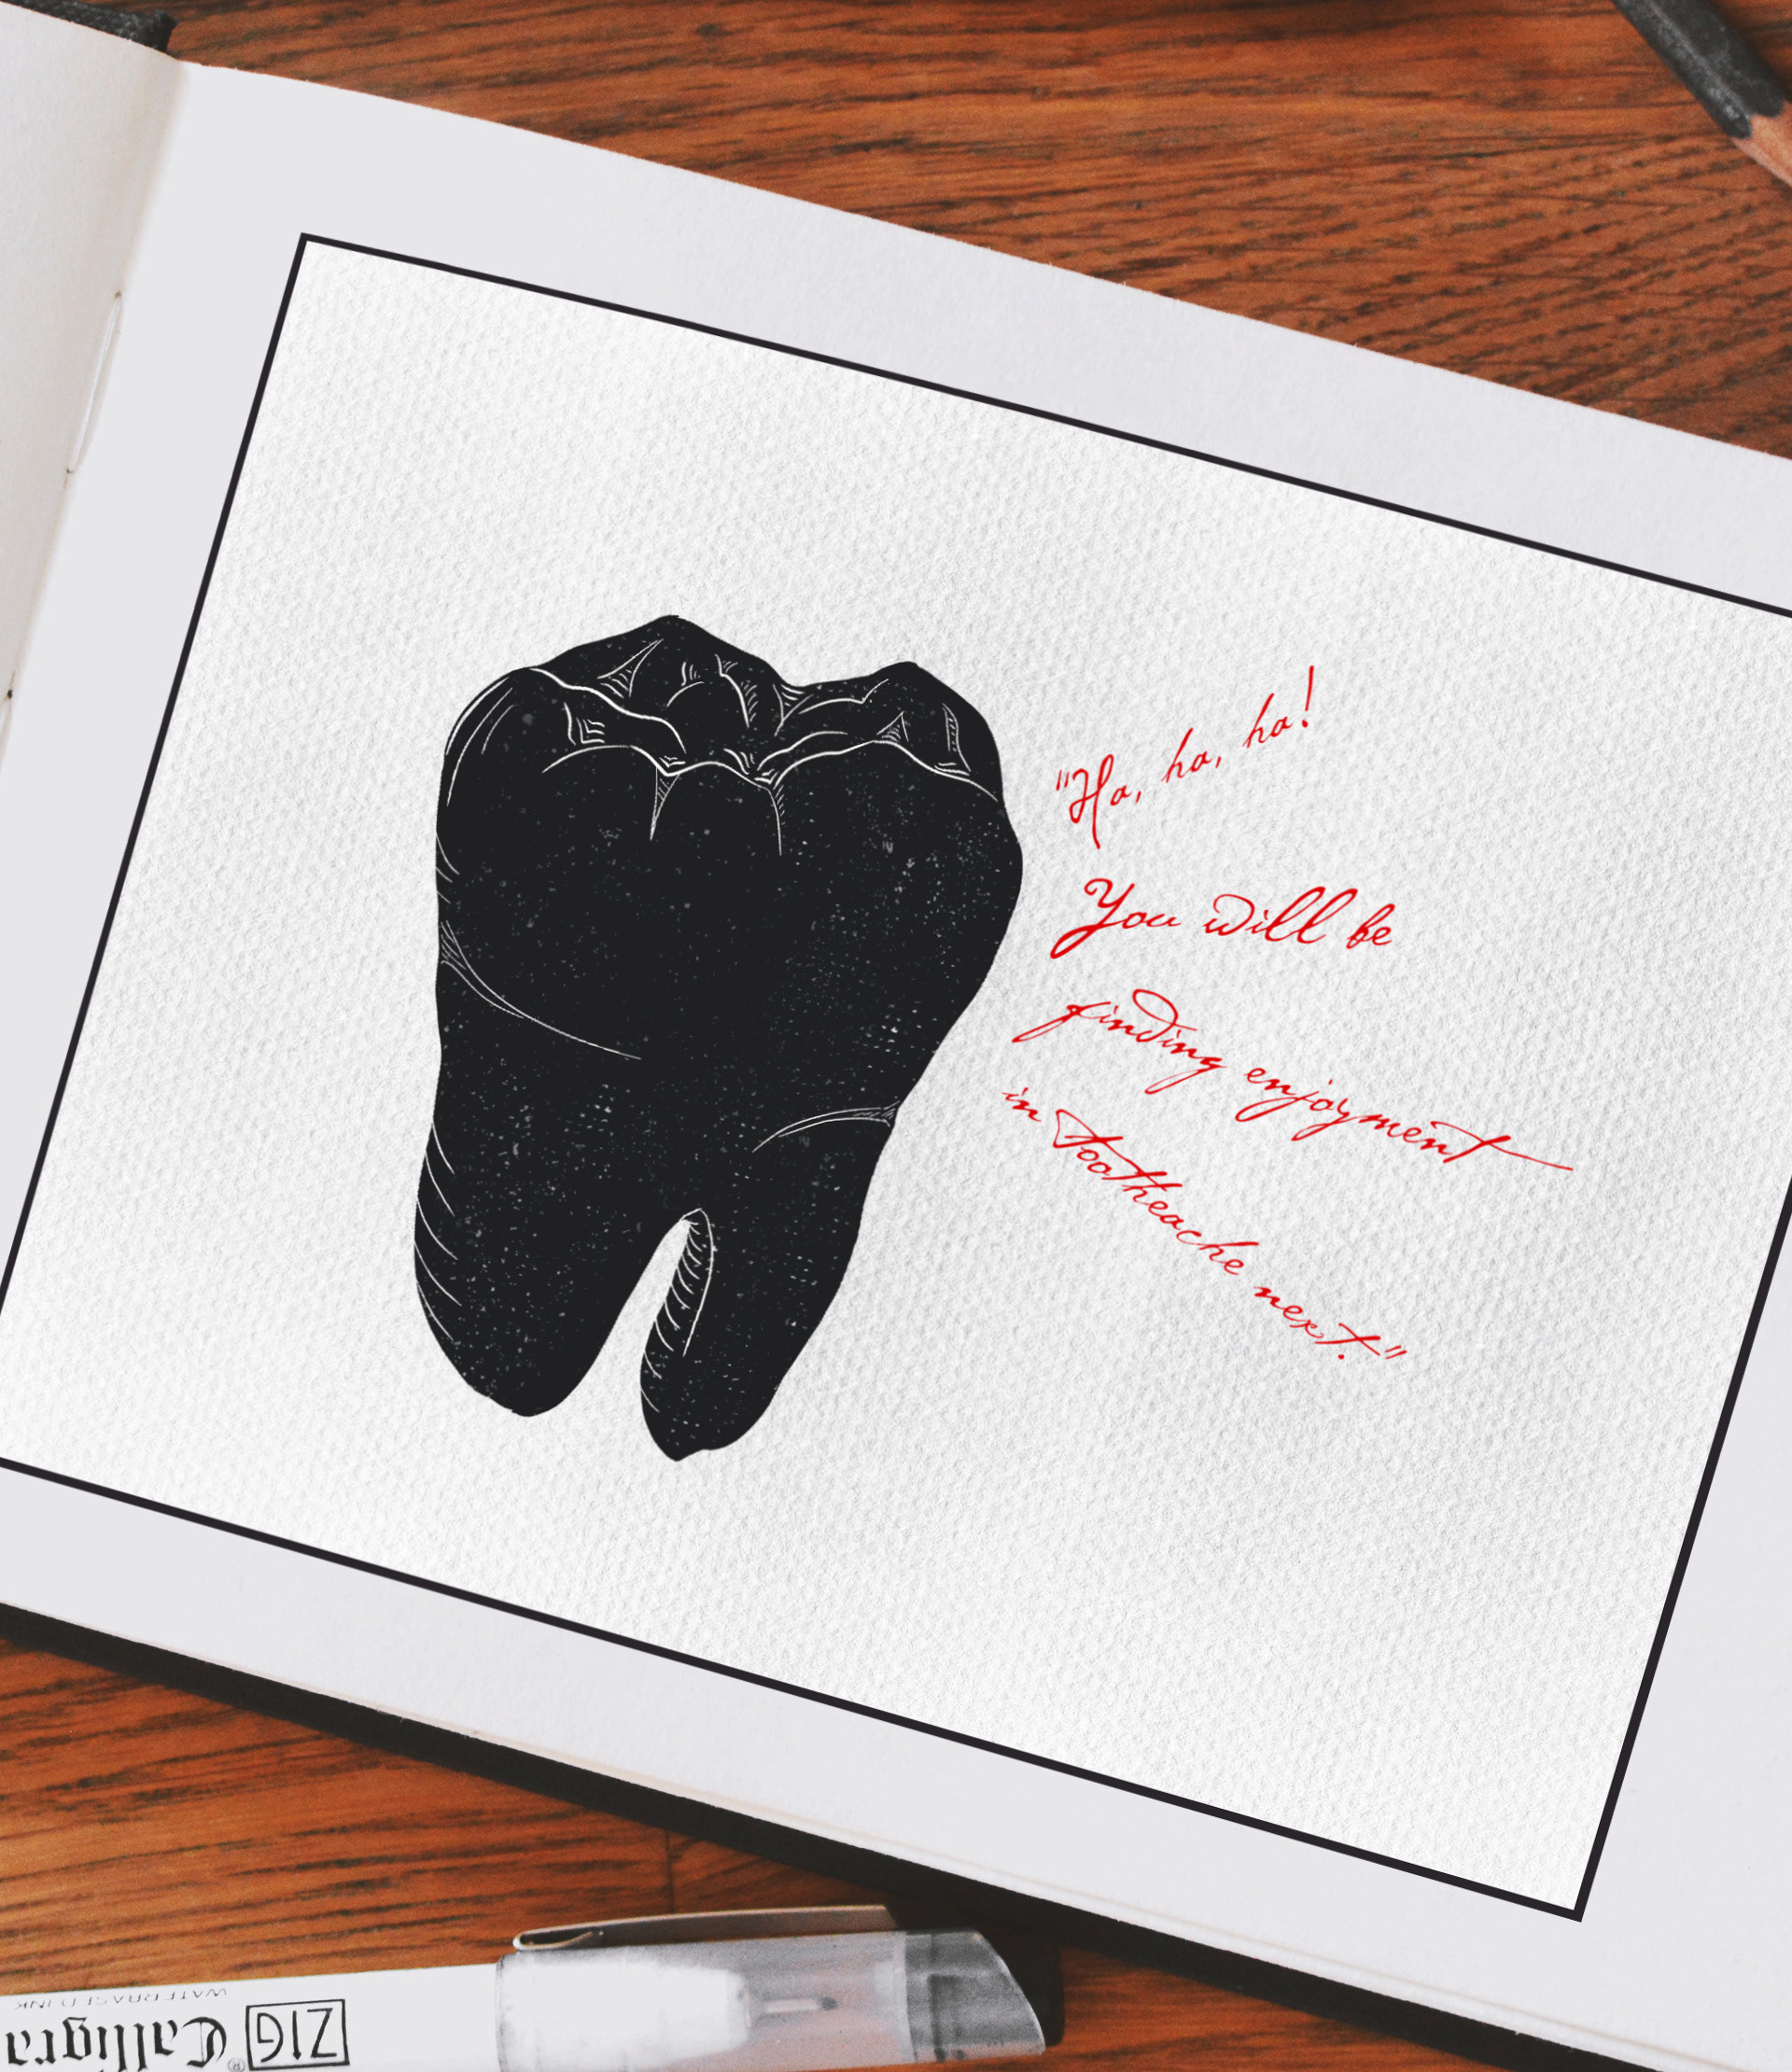 "Ha, ha, ha!
You will be
finding enjoyment
in tootheache next."
ZIG Calligra
WATERBASED INK